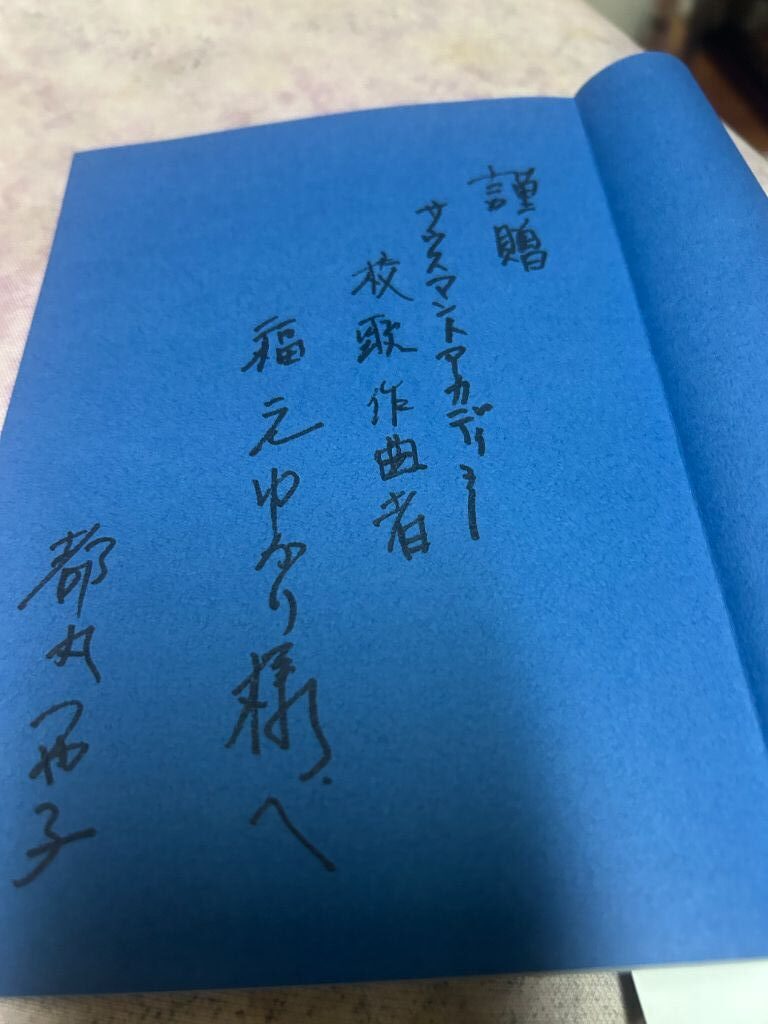 謹贈
サウスマントアカディミー
校歌作曲者
福元ゆかり様へ
都丸子